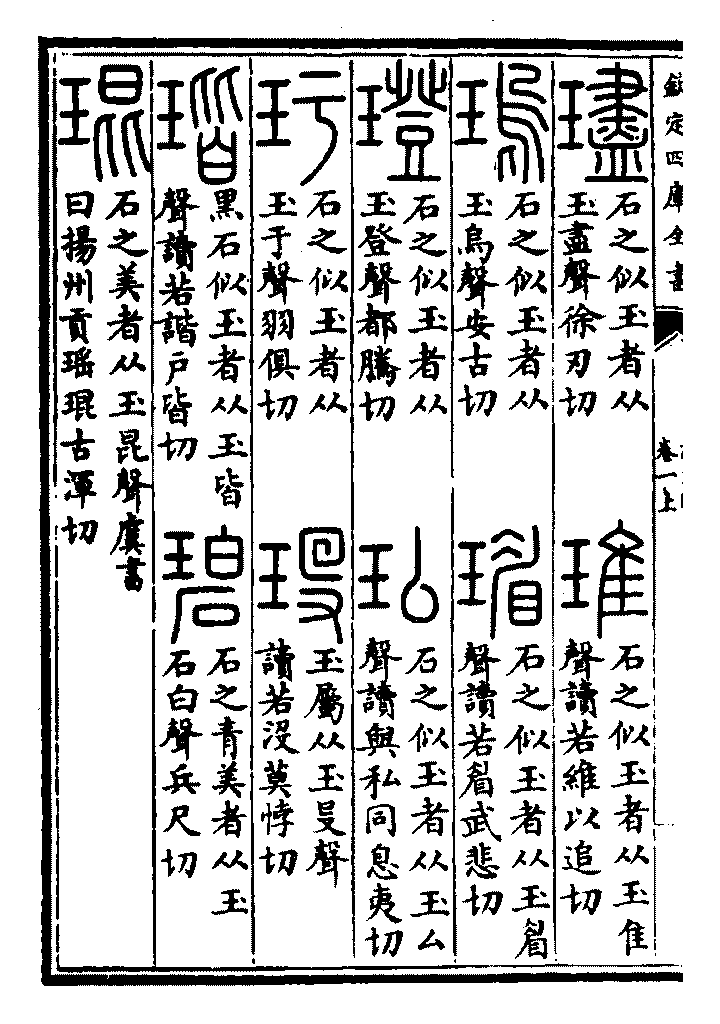 欽定四庫全書
卷一上
璶
石之似玉者从
玉盡聲徐刃切
琟
石之似玉者从玉隹
聲讀若維以追切
瑦
石之似玉者从
玉烏聲安古切
瑂
石之似玉者从玉眉
聲讀若眉武悲切
璒
石之似玉者从
玉登聲都騰切
㺨
石之似玉者从玉厶
聲讀與私同息夷切
玗
石之似玉者从
玉于聲羽俱切
玉屬从玉𠬛聲
讀若沒莫悖切
瑎
黑石似玉者从玉皆
聲讀若諧戶皆切
碧
石之青美者从玉
石白聲兵尺切
琨
石之美者从玉昆聲虞書
曰揚州貢瑶琨古渾切